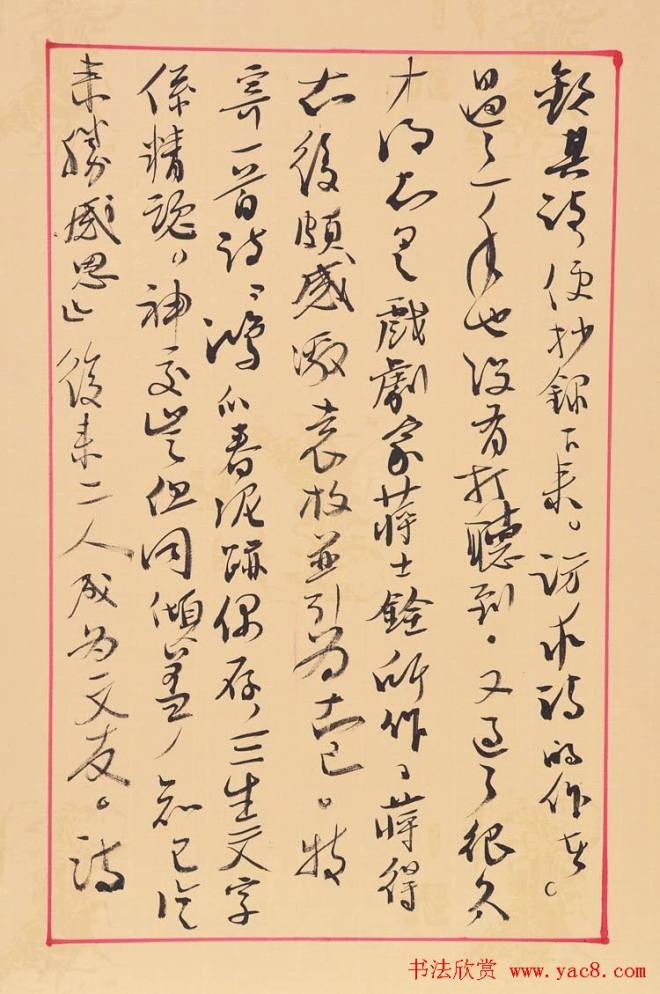 钦其诗，便抄录下来。访求诗的作者。
过了一年也没有打聽到。又过了很久
才得知是戲劇家蒋士銓所作，蒋得
知後頗感激袁枚並引為知己。特
寄一首诗，鴻爪春泥跡偶存，三生文字
係精魂，神交豈但同傾盖，知己從
来勝感恩」後来二人成为文友。詩
书法欣赏 www.yac8.com